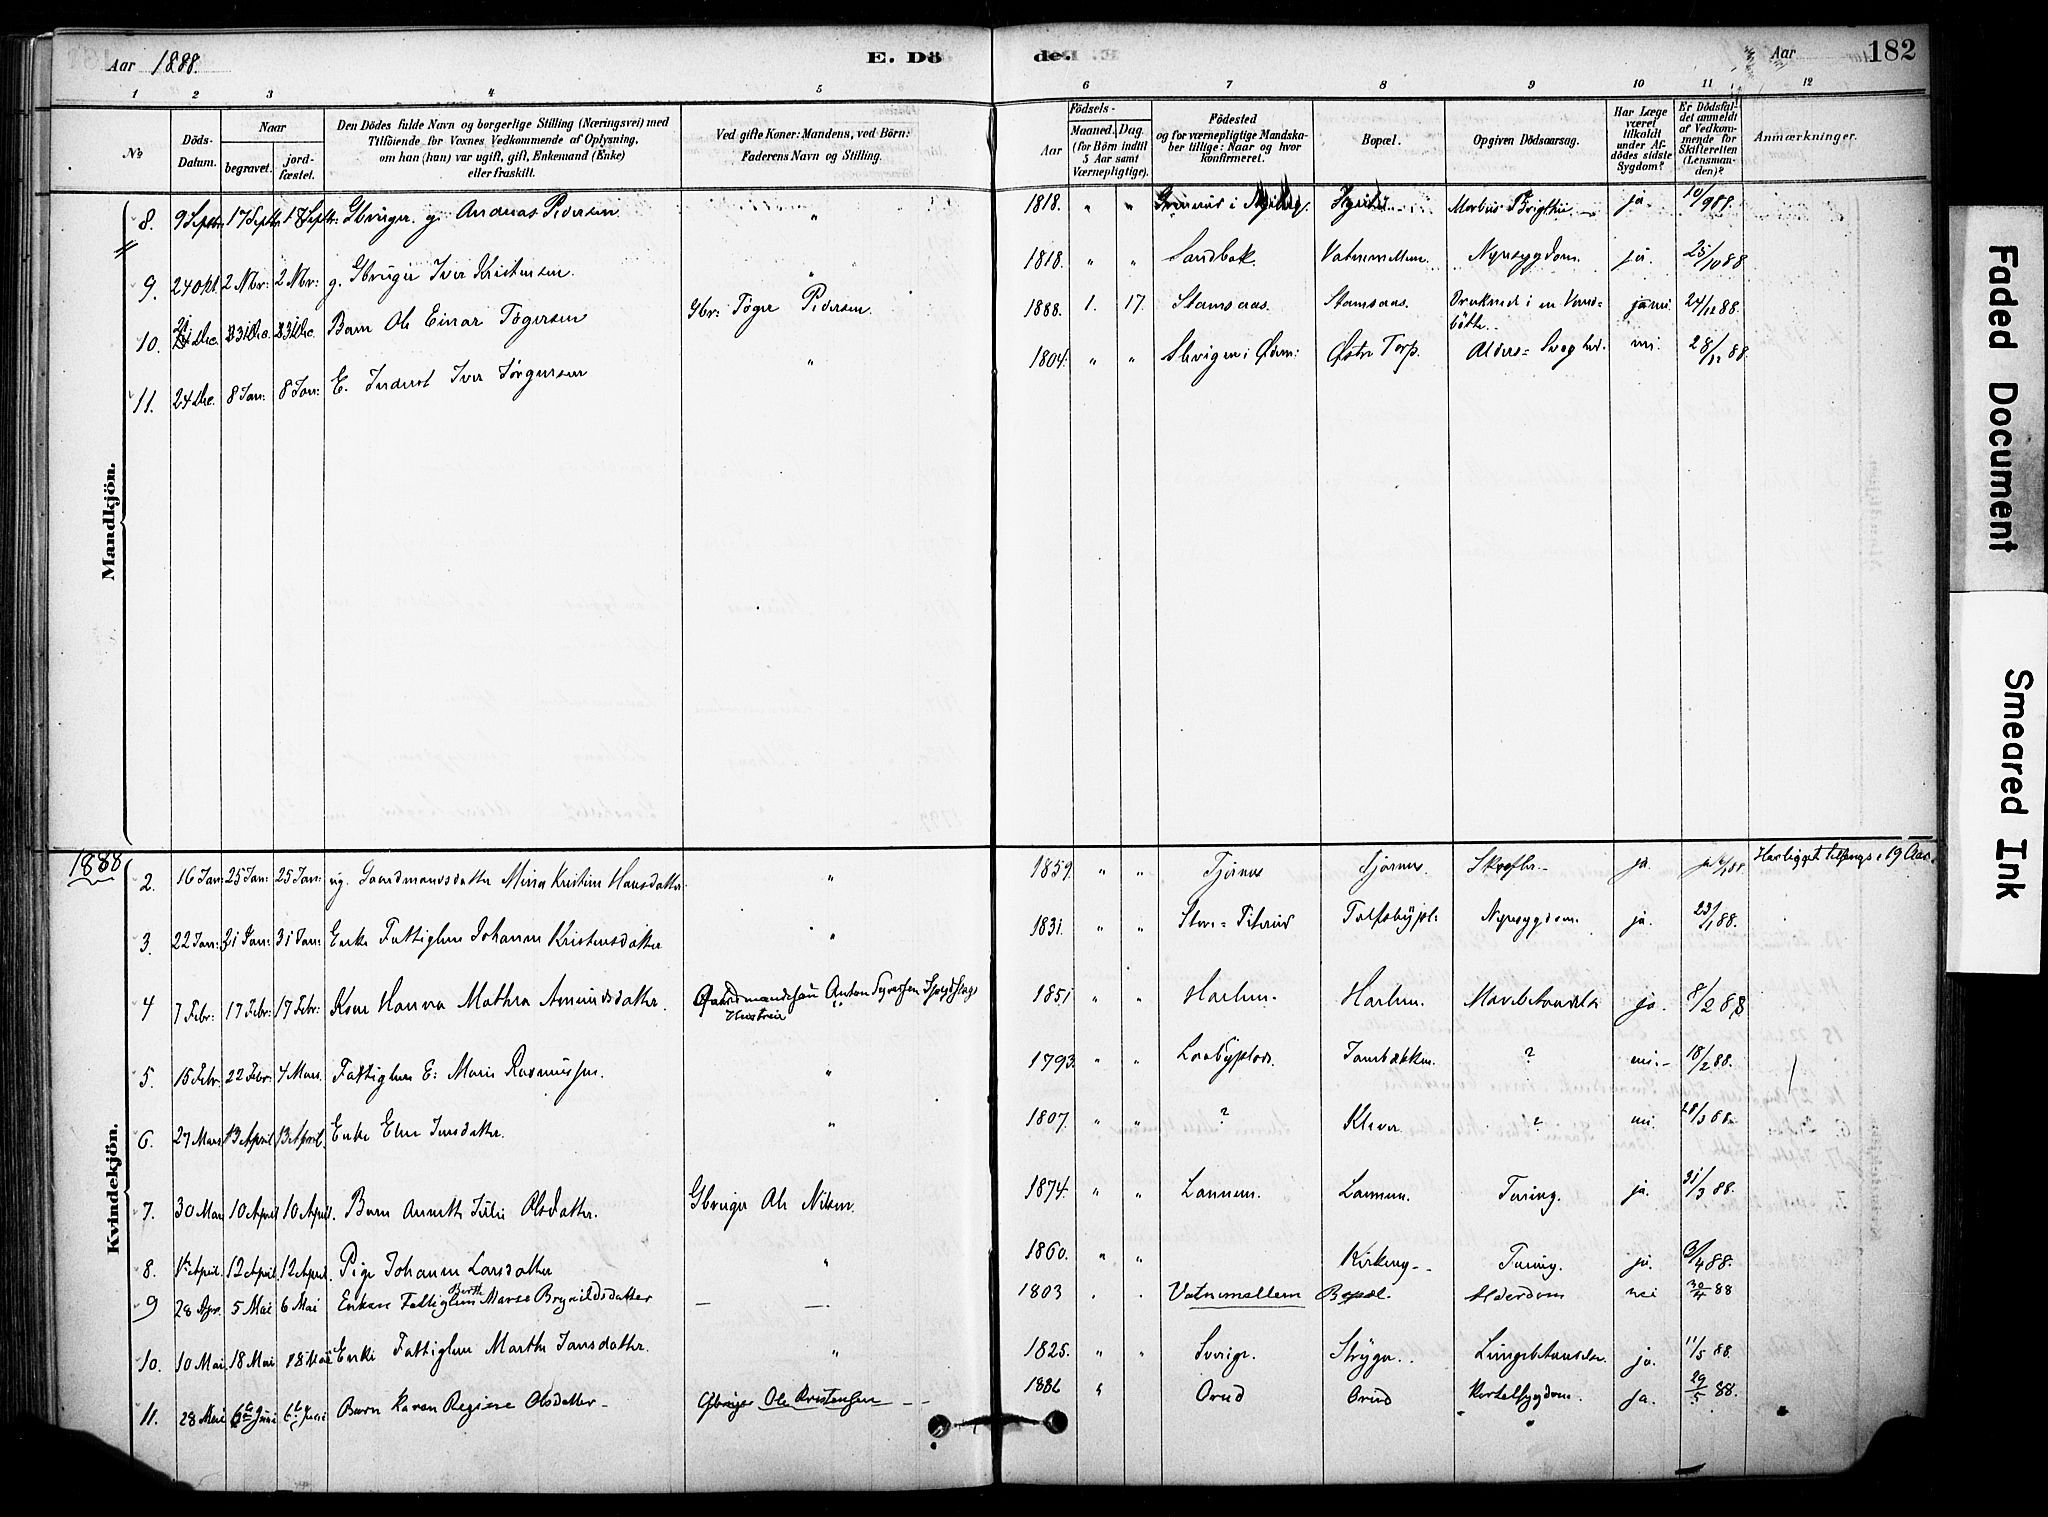 Aar 1888.
E. Döde.
Aar
182
1 2 3 4 5 6 7 8 9 10 11 12
No
Döds-Datum.
Naar
begravet.
jordfæstet.
Den Dödes fulde Navn og borgerlige Stilling (Næringsvei) med
Tilföiende for Voxnes Vedkommende af Oplysning,
om han (hun) var ugift, gift, Enkemand (Enke)
eller fraskilt.
Ved gifte Koner: Mandens, ved Börn:
Faderens Navn og Stilling.
Födsels-
Aar
Maaned. Dag.
(for Börn indtil
5 Aar samt
Værnepligtige).
Födested
og for værnepligtige Mandskaber tillige: Naar og hvor
konfirmeret.
Bopæl.
Opgiven Dödsaarsag.
Har Læge
været
tilkaldt
under Afdödes sidste
Sygdom?
Er Dödsfaldet anmeldt
af Vedkommende for
Skifteretten
(Lensmanden)?
Anmærkninger.
Mandkjön.
8. 9 Septbr. 17 Septbr. 18 Septbr. Gbruger g. Andreas Pedersen " 1818. " " Morbus Brigthii ja. 10/9 88.
9. 24 Okt. 2 Nbr: 2 Nbr: g. Gbruger Iver Kristensen. " 1818. " " Sandbæk. Vatnemellem. Nyresygdom. ja. 25/10 88
10. 31 Dec. 31 Dec. Barn Ole Einar Tøgersen Gbr: Tøger Pedersen. 1888. 1. 17. Stamsaas. Stamsaas. Druknede i en Vandbøtte. nei. 24/12 88.
11. 24 Dec. 8 Jan: 8 Jan: E. Inderst Iver Jørgensen " 1804. " " Østre Torp. Alders-Svaghed. nei. 28/12 88
Kvindekjön.
1888
2. 16 Jan: 25 Jan: 25 Jan: ug. Gaardmandsdatter Mina Kristine Hansdatter. " 1859. " " Tjernes Tjernes. Skrofler. ja. Har ligget tilsengs i 19 Aar.
3. 22 Jan: 31 Jan: 31 Jan: Enke Fattiglem Johanne Kristensdatter " 1831. " " Store-Nyresygdom. ja. 23/1 88.
4 7 Febr: 17 Febr: 17 Febr: Kone Hanna Mathea Amundsdatter. Anton Syversen 1851 " " Harlem. Harlem. ja. 8/2 88
Hustru
5. 15 Febr: 22 Febr: 4 Mars. Fattiglem E: Marie Rasmussen. " 1793. " " ? nei. 18/2 88.
6. 27 Mars 13 April. 13 April. Enke Elen Jensdatter. " 1807. " " ? Klever. ? nei. 28/3 88
7. 30 Mars 10 April 10 April. Barn Annette Julie Olsdatter. Gbruger Ole Nilsen. 1874. " " Lannem. Lannem. Tæring. ja. 31/3 88.
8. 1te April. 12 April 12 April. Pige Johanne Larsdatter " 1860. " " Kirkeng. Tæring. ja. 3/4 88.
9 28 Apr. 5 Mai 6 Mai Enken Fattiglem Berthe Marie Brynildsdatter — —. 1803 . . Vatnemellem Bopæl. Alderdom nei 30/4 88
10. 10 Mai 18 Mai 18 Mai Enke Fattiglem Marthe Jansdatter. " 1825. " " Sverige. Lungebetændelse. ja. 11/5 88.
11. 28 Mai 6te Juni 6te Juni Barn Karen Regine Olsdatter Gbruger Ole Kristensen 1886 " Orud Orud Kirtelsygdom. Ja. 29/5 88.
Faded Document
Smeared Ink